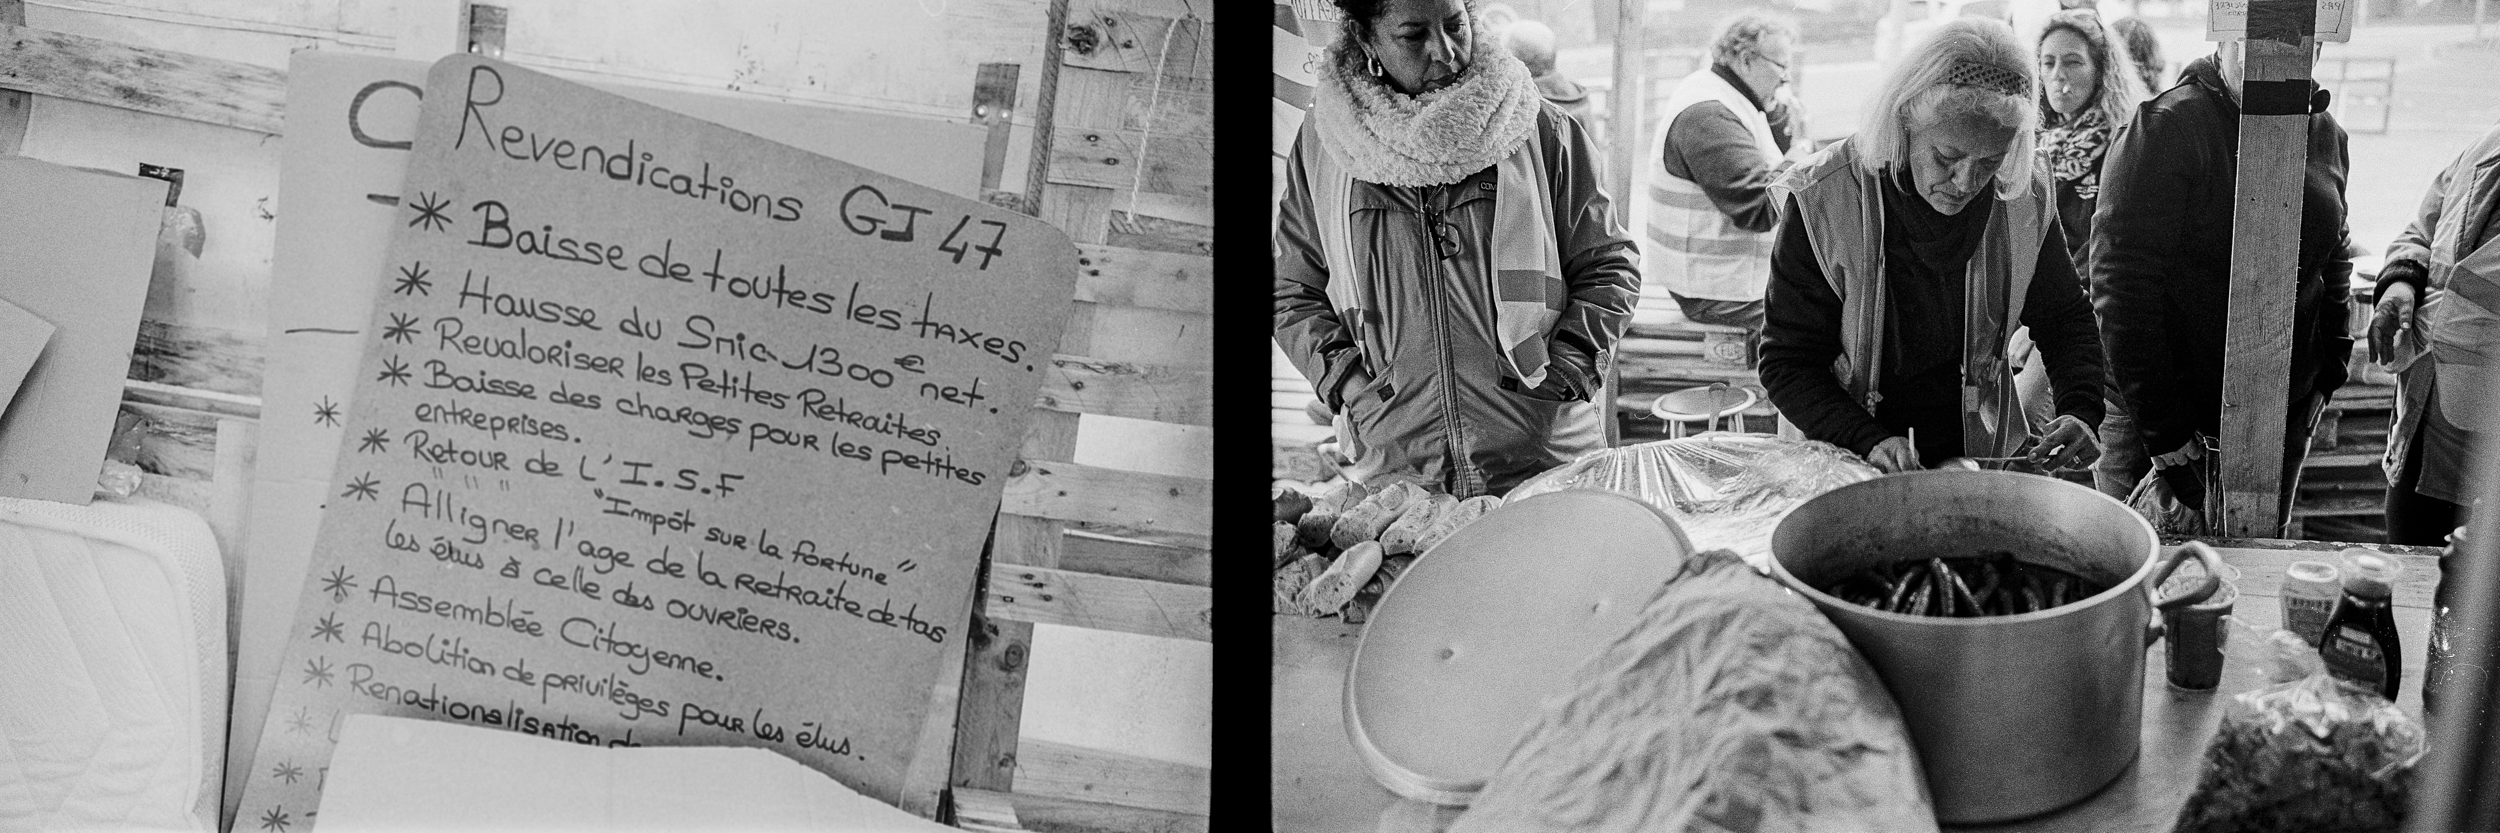 Revendications GJ 47
* Baisse de toutes les taxes.
* Hausse du Smic 1300€ net.
* Revaloriser les Petites Retraites.
* Baisse des charges pour les petites
entreprises.
* Retour de L'I.S.F
" " " "Impôt sur la fortune"
* Alligner l'age de la retraite de tas
les élus à celle des ouvriers.
* Assemblée Citoyenne.
* Abolition de privilèges pour les élus.
* Renationalisation de